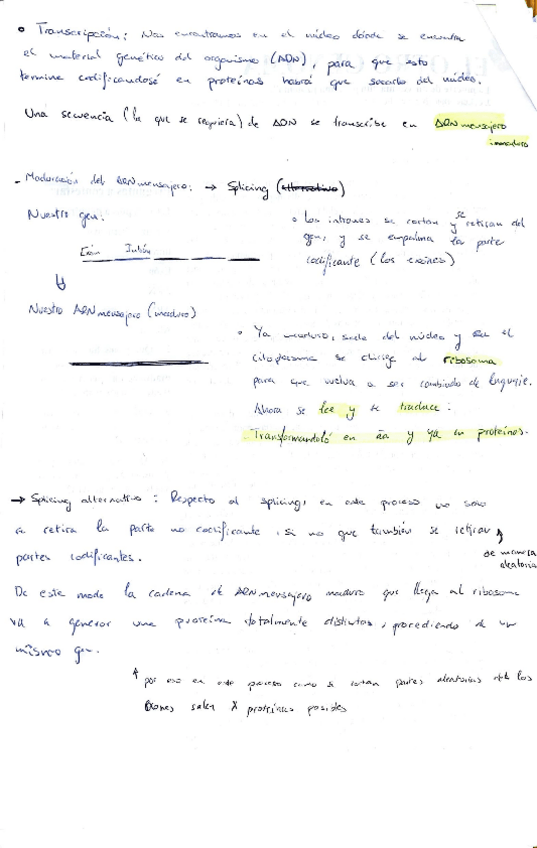 • Transcripción: Nos encontramos en el núcleo dónde se encuentra
el material genético del organismo (ADN), para que esto
termine codificandosé en proteínas habrá que sacarlo del núcleo.
Una secuencia (la que se requiera) de ADN se transcribe en ARN mensajero
inmaduro
- Maduración del ARN mensajero: → Splicing (alternativo)
Nuestro gen:
Exón Intrón
• Los intrones se cortan y se retiran del
gen, y se empalma la parte
codificante (los exones)
Nuestro ARN mensajero (maduro)
• Ya maduro, sale del núcleo y en el
citoplasma se dirige al ribosoma
para que vuelva a ser cambiado de lenguaje.
Ahora se lee y se traduce:
Transformandoló en aa y ya en proteínas.
→ Splicing alternativo: Respecto al splicing, en este proceso no solo
se retira la parte no codificante, si no que también se retiran
de manera
aleatoria
partes codificantes.
De este modo la cadena de ARN mensajero maduro que llega al ribosoma
va a generar una proteína totalmente distintas, procediendo de un
mismo gen.
↑ por eso en este proceso como se cortan partes aleatorias de los
exones salen X proteínas posibles